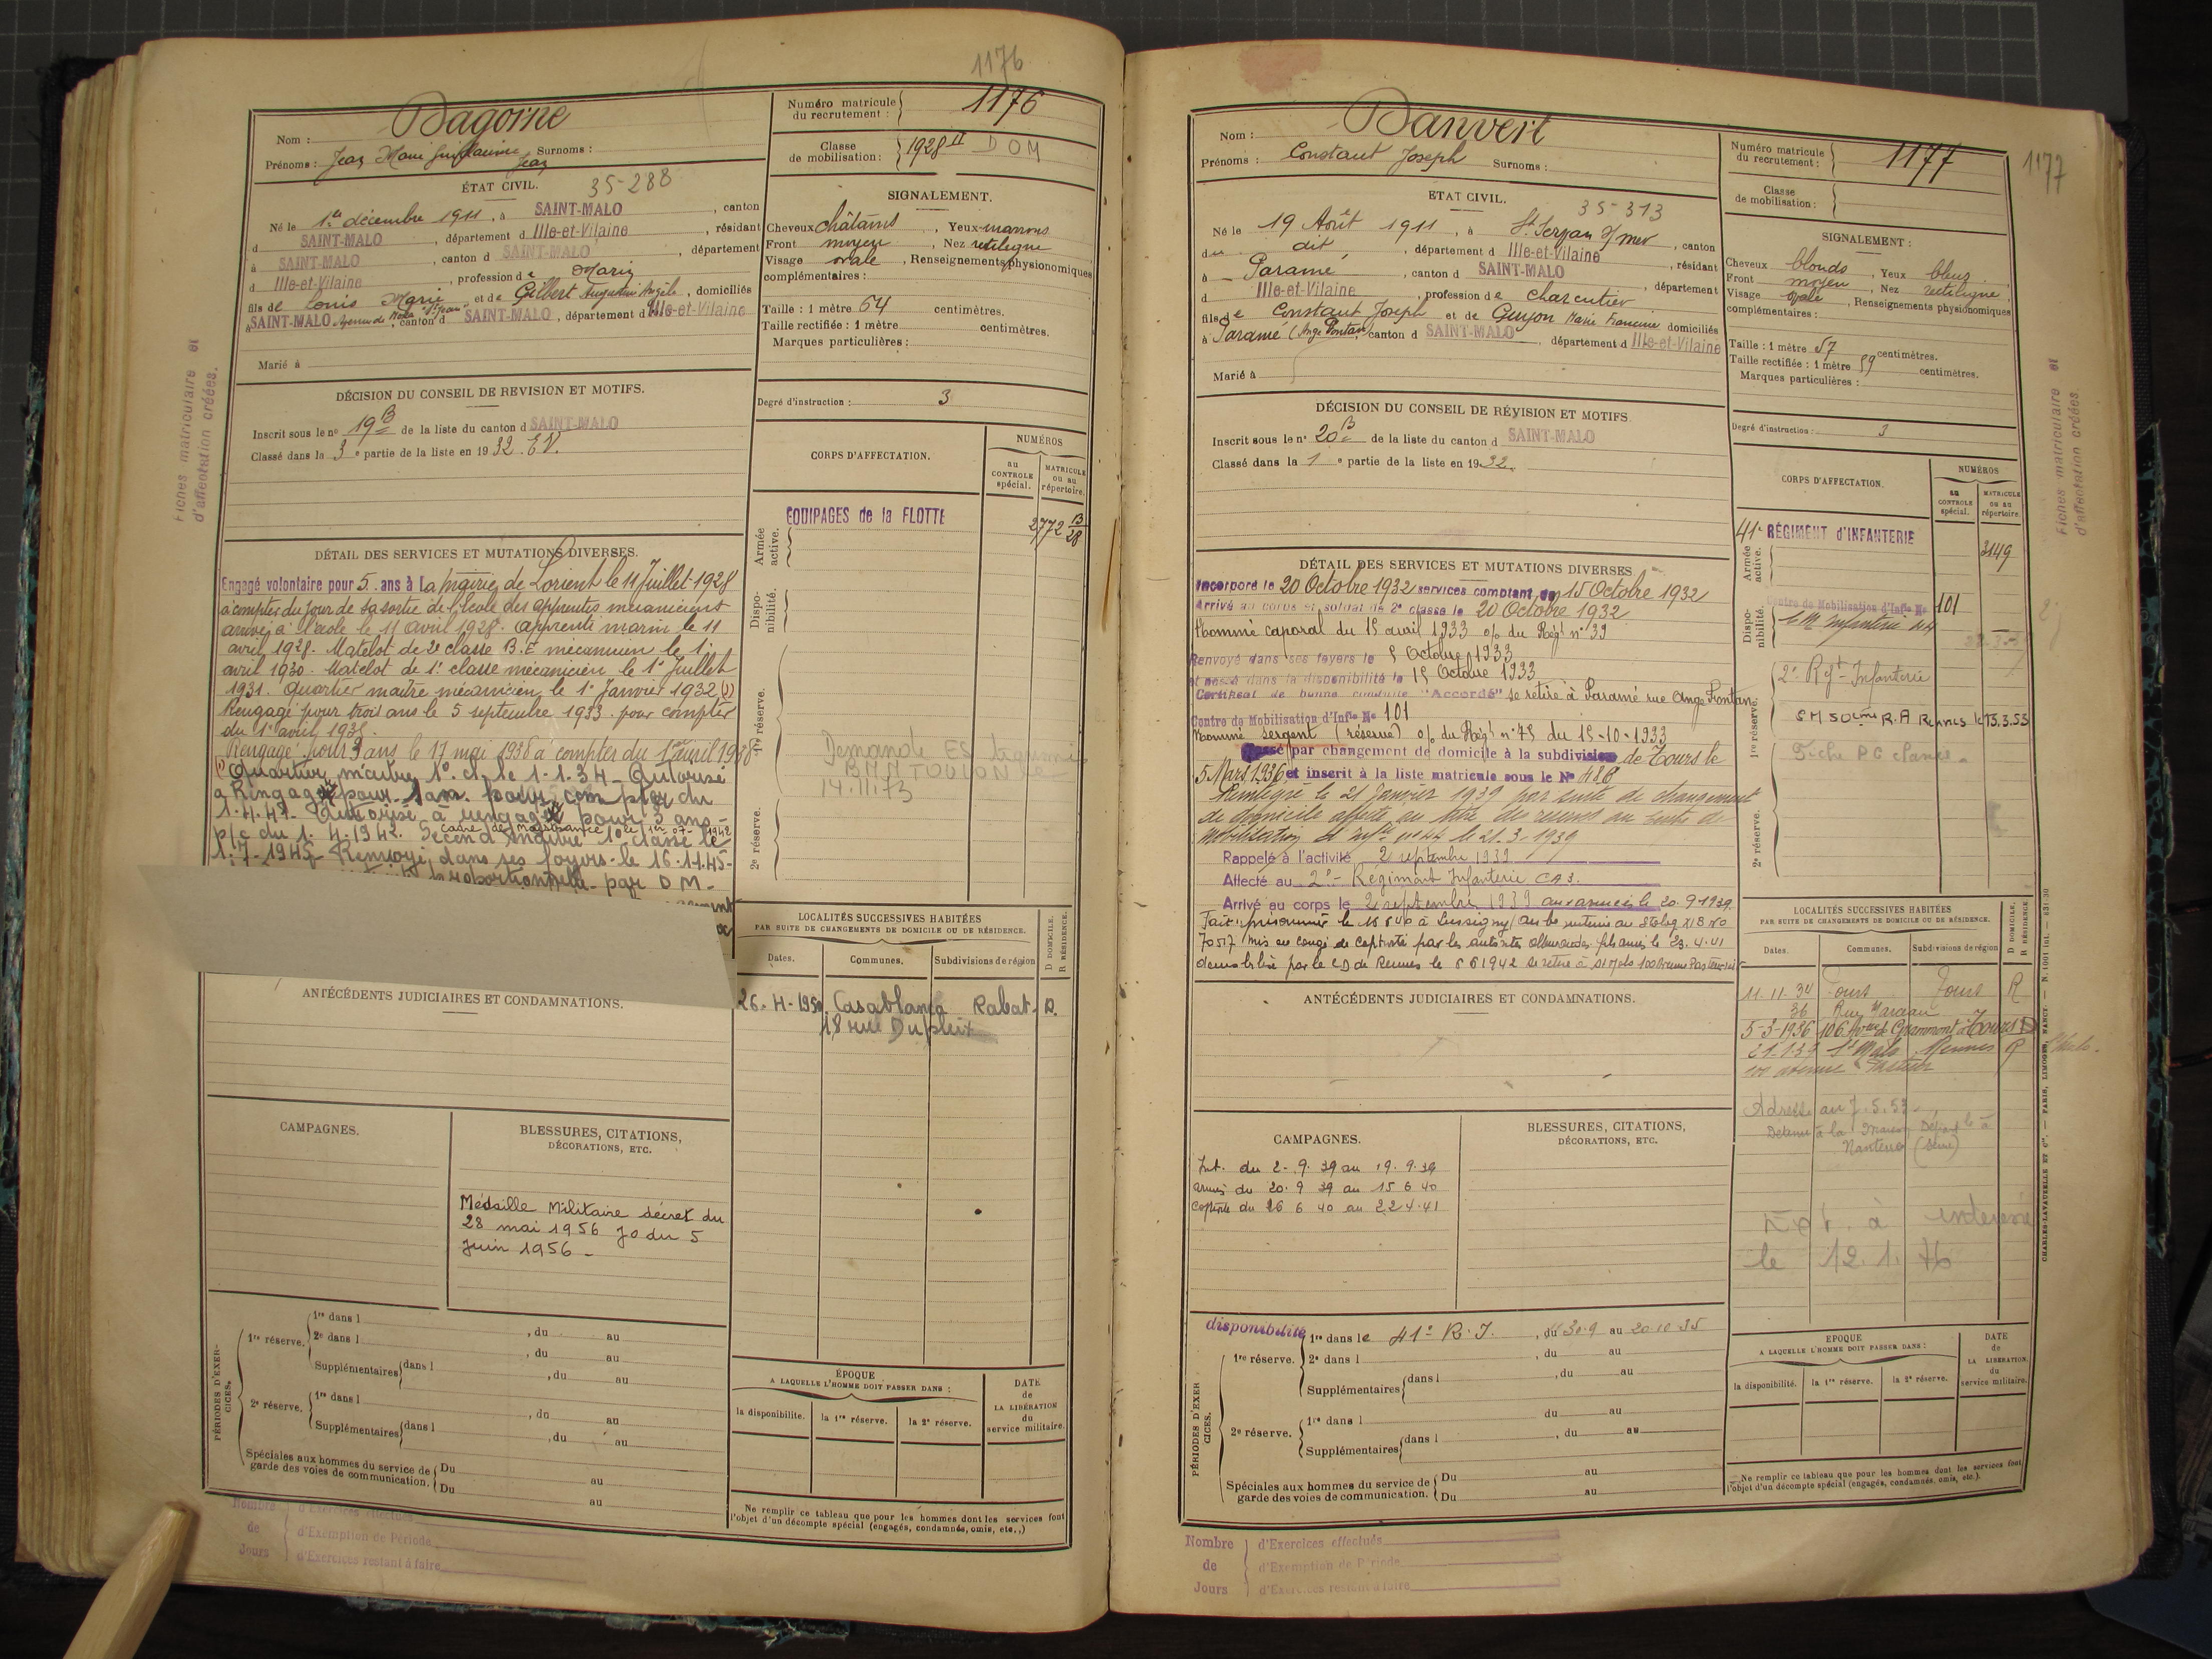 1176
Nom : Dagorne
Prénoms : Jean Marie Guillaume Jean Surnoms :
Numéro matricule du recrutement : 1176
Classe de mobilisation : 1928 II DOM
ÉTAT CIVIL. 35-288
Né le 1er décembre 1911, à SAINT-MALO, canton
d SAINT-MALO, département d Ille-et-Vilaine, résidant
à SAINT-MALO, canton d SAINT-MALO, département
d Ille-et-Vilaine, profession de Marin
fils de Louis Marie et de Gilbert Augustine Angèle, domiciliés
à SAINT-MALO Avenue de, canton d SAINT-MALO, département d Ille-et-Vilaine
Marié à
SIGNALEMENT.
Cheveux châtains, Yeux marrons
Front moyen, Nez rectiligne
Visage ovale, Renseignements physionomiques
complémentaires :
Taille : 1 mètre 64 centimètres.
Taille rectifiée : 1 mètre centimètres.
Marques particulières :
Degré d'instruction : 3
DÉCISION DU CONSEIL DE REVISION ET MOTIFS.
Inscrit sous le n° 19 B de la liste du canton d SAINT-MALO
Classé dans la 3e partie de la liste en 1932. E.V.
CORPS D'AFFECTATION.
NUMÉROS
au CONTROLE spécial.
MATRICULE ou au répertoire.
Fiches matriculaire et
d'affectation créées.
Armée active.
EQUIPAGES de la FLOTTE
2772 B/28
Dispo-nibilité.
1re réserve.
Demande ES
BMM TOULON
14.11.73
2e réserve.
DÉTAIL DES SERVICES ET MUTATIONS DIVERSES.
Engagé volontaire pour 5 ans à La mairie de Lorient le 11 Juillet 1928
à compter du jour de sa sortie de l'école des apprentis mécaniciens
arrivé à l'école le 11 avril 1928. apprenti marin le 11
avril 1928. Matelot de 2e classe B.E mécanicien le 1er
avril 1930. Matelot de 1e classe mécanicien le 1er Juillet
1931. Quartier maître mécanicien le 1er Janvier 1932 (1)
Rengagé pour trois ans le 5 septembre 1933. pour compter
du 1er avril 1935.
Rengagé pour 3 ans le 17 mai 1938 à compter du 1er avril 1938
(1) Quartier m. 1° cl. le 1.1.34 - Autorisé
à Rengager pour 1 an. pour compter du
1.4.47. Autorisé à rengager pour 3 ans -
p/c du 1.4.1942. Second Maître 1° classe le
cadre de maistrance le 1er 07-1942
1.7-1945 - Renvoyé dans ses foyers le 16.11.45-
proportionnelle par D.M-
LOCALITÉS SUCCESSIVES HABITÉES
PAR SUITE DE CHANGEMENTS DE DOMICILE OU DE RÉSIDENCE.
Dates. Communes. Subdivisions de région
D DOMICILE. R RÉSIDENCE.
26-4-1950 Casablanca Rabat. R.
18 rue Dupleix
ANTÉCÉDENTS JUDICIAIRES ET CONDAMNATIONS.
CAMPAGNES.
BLESSURES, CITATIONS,
DÉCORATIONS, ETC.
Médaille Militaire décret du
28 mai 1956 JO du 5
Juin 1956 -
PÉRIODES D'EXER-CICES.
1re réserve. 1re dans l , du au
2e dans l , du au
Supplémentaires dans l , du au
2e réserve. 1re dans l , du au
Supplémentaires dans l , du au
Spéciales aux hommes du service de
garde des voies de communication.
Du au
Du au
ÉPOQUE
A LAQUELLE L'HOMME DOIT PASSER DANS :
la disponibilite. la 1re réserve. la 2e réserve.
DATE de LA LIBÉRATION du service militaire.
Ne remplir ce tableau que pour les hommes dont les services font
l'objet d'un décompte spécial (engagés, condamnés, omis, etc.,)
Nombre de Jours
d'Exercices effectués
d'Exemption de Période
d'Exercices restant à faire
1177
Nom : Danvert
Prénoms : Constant Joseph Surnoms :
Numéro matricule du recrutement : 1177
Classe de mobilisation :
ETAT CIVIL. 35-313
Né le 19 Août 1911, à St Servan s/mer, canton
du dit, département d Ille-et-Vilaine, résidant
à Paramé, canton d SAINT-MALO, département
d Ille-et-Vilaine, profession de charcutier
fils de Constant Joseph et de Guyon Marie Francine domiciliés
à Paramé (Ange Fontan), canton d SAINT-MALO, département d Ille-et-Vilaine
Marié à
SIGNALEMENT :
Cheveux blonds, Yeux bleus
Front moyen, Nez rectiligne
Visage ovale, Renseignements physionomiques
complémentaires :
Taille : 1 mètre 57 centimètres.
Taille rectifiée : 1 mètre 59 centimètres.
Marques particulières :
Degré d'instruction : 3
DÉCISION DU CONSEIL DE RÉVISION ET MOTIFS
Inscrit sous le n° 20 B de la liste du canton d SAINT-MALO
Classé dans la 1e partie de la liste en 1932.
CORPS D'AFFECTATION.
NUMÉROS
au CONTROLE spécial.
MATRICULE ou au répertoire.
Fiches matriculaire et
d'affectation créées.
Armée active.
41e RÉGIMENT d'INFANTERIE
3149
Dispo-nibilité.
Centre de Mobilisation d'Infie N° 101
C M Infanterie 44
1re réserve.
2e Régt Infanterie
CM 50ème R.A Rennes le 13.3.53
Fiche PC
2e réserve.
DÉTAIL DES SERVICES ET MUTATIONS DIVERSES.
Incorporé le 20 Octobre 1932 services comptant du 15 Octobre 1932
Arrivé au corps et soldat de 2e classe le 20 Octobre 1932
Nommé caporal du 15 avril 1933 o/o du Régt n° 39
Renvoyé dans ses foyers le 5 Octobre 1933
et passé dans la disponibilité le 15 Octobre 1933
Certificat de bonne conduite "Accordé" se retire à Paramé rue Ange Fontan
Centre de Mobilisation d'Infie N° 101
Nommé sergent (réserve) o/o du Régt n° 75 du 15-10-1933
Passé par changement de domicile à la subdivision de Tours le
5 Mars 1936 et inscrit à la liste matricule sous le N° 416
Réintégré le 21 Janvier 1939 par suite de changement
de domicile affecté au titre des réserves au Centre de
mobilisation d'Infie n°44 le 21.3-1939
Rappelé à l'activité 2 septembre 1939
Affecté au 2e Régiment Infanterie CA3.
Arrivé au corps le 2 septembre 1939 aux armées le 20.9.1939.
Fait prisonnier le 16 6 40 à interné au Stalag XI B N°
70517 Mis en congé de captivité par les autorités allemandes le 23.4.41
démobilisé par le CD de Rennes le 5 6 1942 se retire à St Malo 100 avenue Pasteur
ANTÉCÉDENTS JUDICIAIRES ET CONDAMNATIONS.
LOCALITÉS SUCCESSIVES HABITÉES
PAR SUITE DE CHANGEMENTS DE DOMICILE OU DE RÉSIDENCE.
Dates. Communes. Subdivisions de région
D DOMICILE. R RÉSIDENCE.
11-11-34 Tours Tours R
36 Rue Marceau
5-3-1936 106 Avenue de Grammont Tours D
21.1.39 St Malo Rennes R
100 avenue Pasteur
Adresse au 7.5.53
Détenu à la Maison Départle à
Nanterre (Seine)
à intéressé
le 12.1.76
CAMPAGNES.
Int. du 2-9.39 au 19.9.39
armées du 20.9 39 au 15 6 40
captivité du 16 6 40 au 22 4.41
BLESSURES, CITATIONS,
DÉCORATIONS, ETC.
PÉRIODES D'EXER CICES.
disponibilité
1re réserve. 1re dans le 41e R.I. , du 30.9 au 20 10 35
2e dans l , du au
Supplémentaires dans l , du au
2e réserve. 1re dans l du au
Supplémentaires dans l , du au
Spéciales aux hommes du service de
garde des voies de communication.
Du au
Du au
EPOQUE
A LAQUELLE L'HOMME DOIT PASSER DANS :
la disponibilité. la 1re réserve. la 2e réserve.
DATE de LA LIBERATION du service militaire.
Ne remplir ce tableau que pour les hommes dont les services font
l'objet d'un décompte spécial (engagés, condamnés, omis, etc.).
CHARLES-LAVAUZELLE ET Cie. — PARIS, LIMOGES, NANCY
Nombre de Jours
d'Exercices effectués
d'Exemption de Période
d'Exercices restant à faire